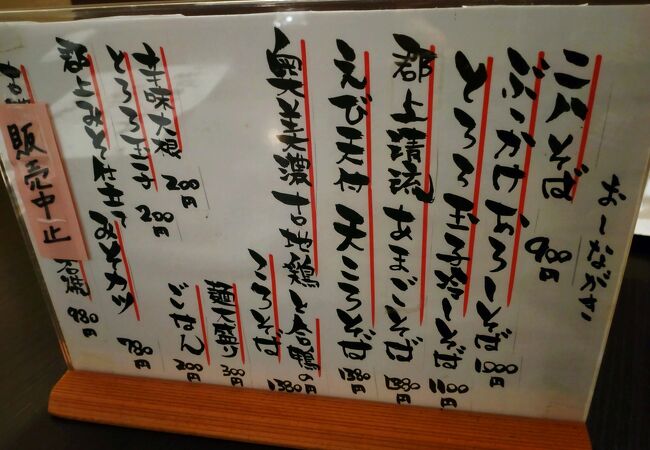 おしながき
二八そば 900円
ぶっかけおろしそば 1000円
とろろ玉子おろしそば 1100円
郡上清流 あまごそば 1380円
えび天付 天ころそば 1380円
奥美濃古地鶏と合鴨の
ころそば 1380円
麺大盛り 300円
ごはん 200円
辛味大根 200円
とろろ玉子 200円
郡上みそ仕立て みそカツ 780円
980円
販売中止